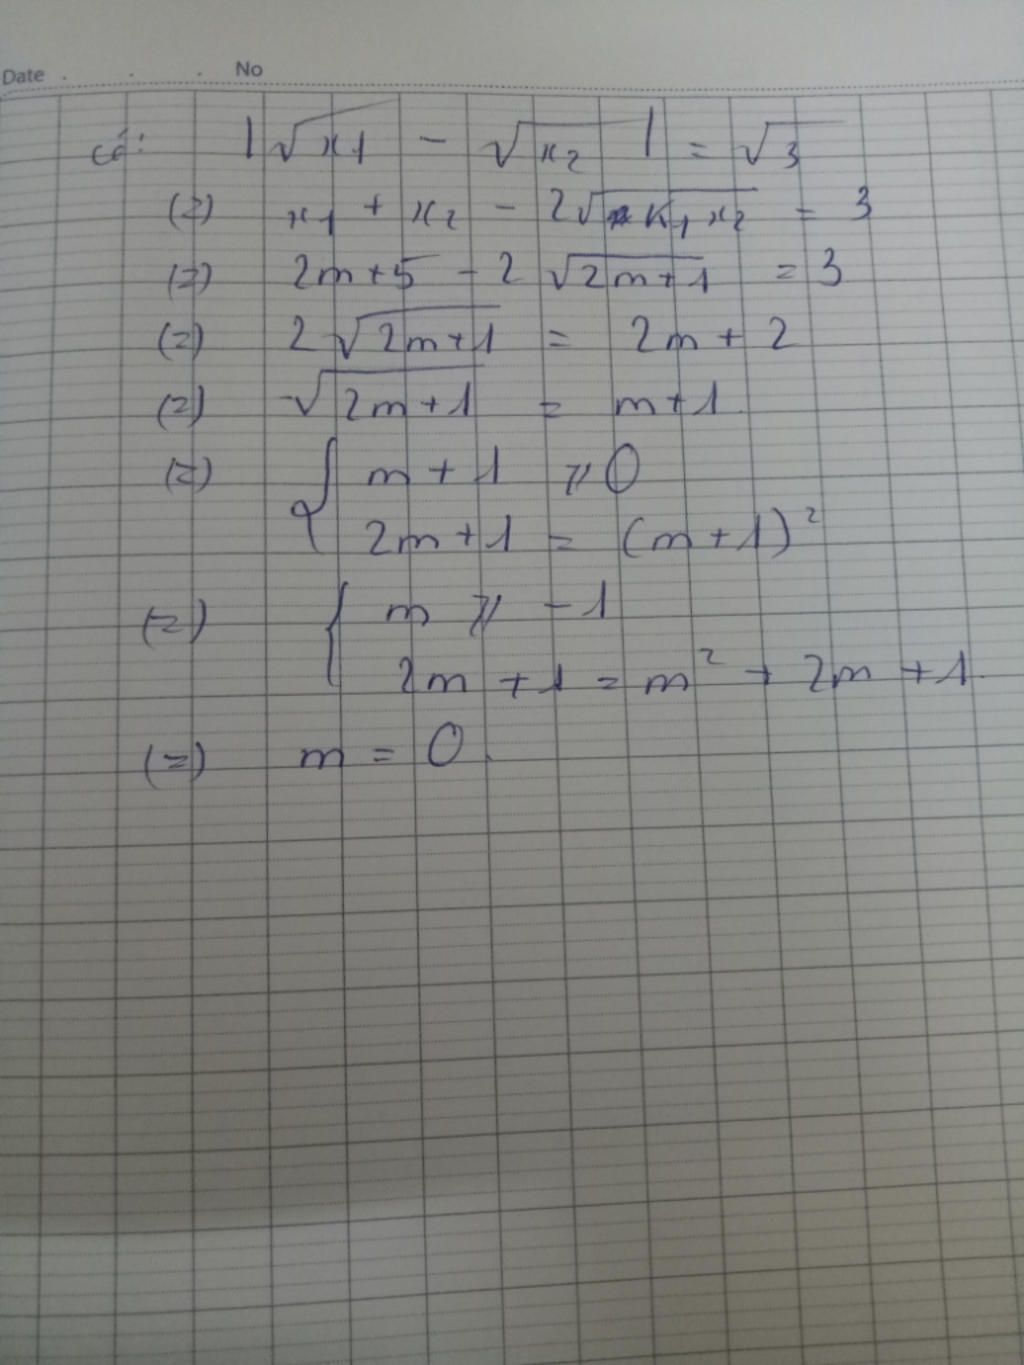 Date . . . No
có: |√x₁ - √x₂| = √3
(=) x₁ + x₂ - 2√x₁x₂ = 3
(=) 2m+5 - 2√2m+1 = 3
(=) 2√2m+1 = 2m + 2
(=) √2m+1 = m+1
(=) { m + 1 ≥ 0
2m+1 = (m+1)²
(=) { m ≥ -1
2m + 1 = m² + 2m + 1.
(=) m = 0.